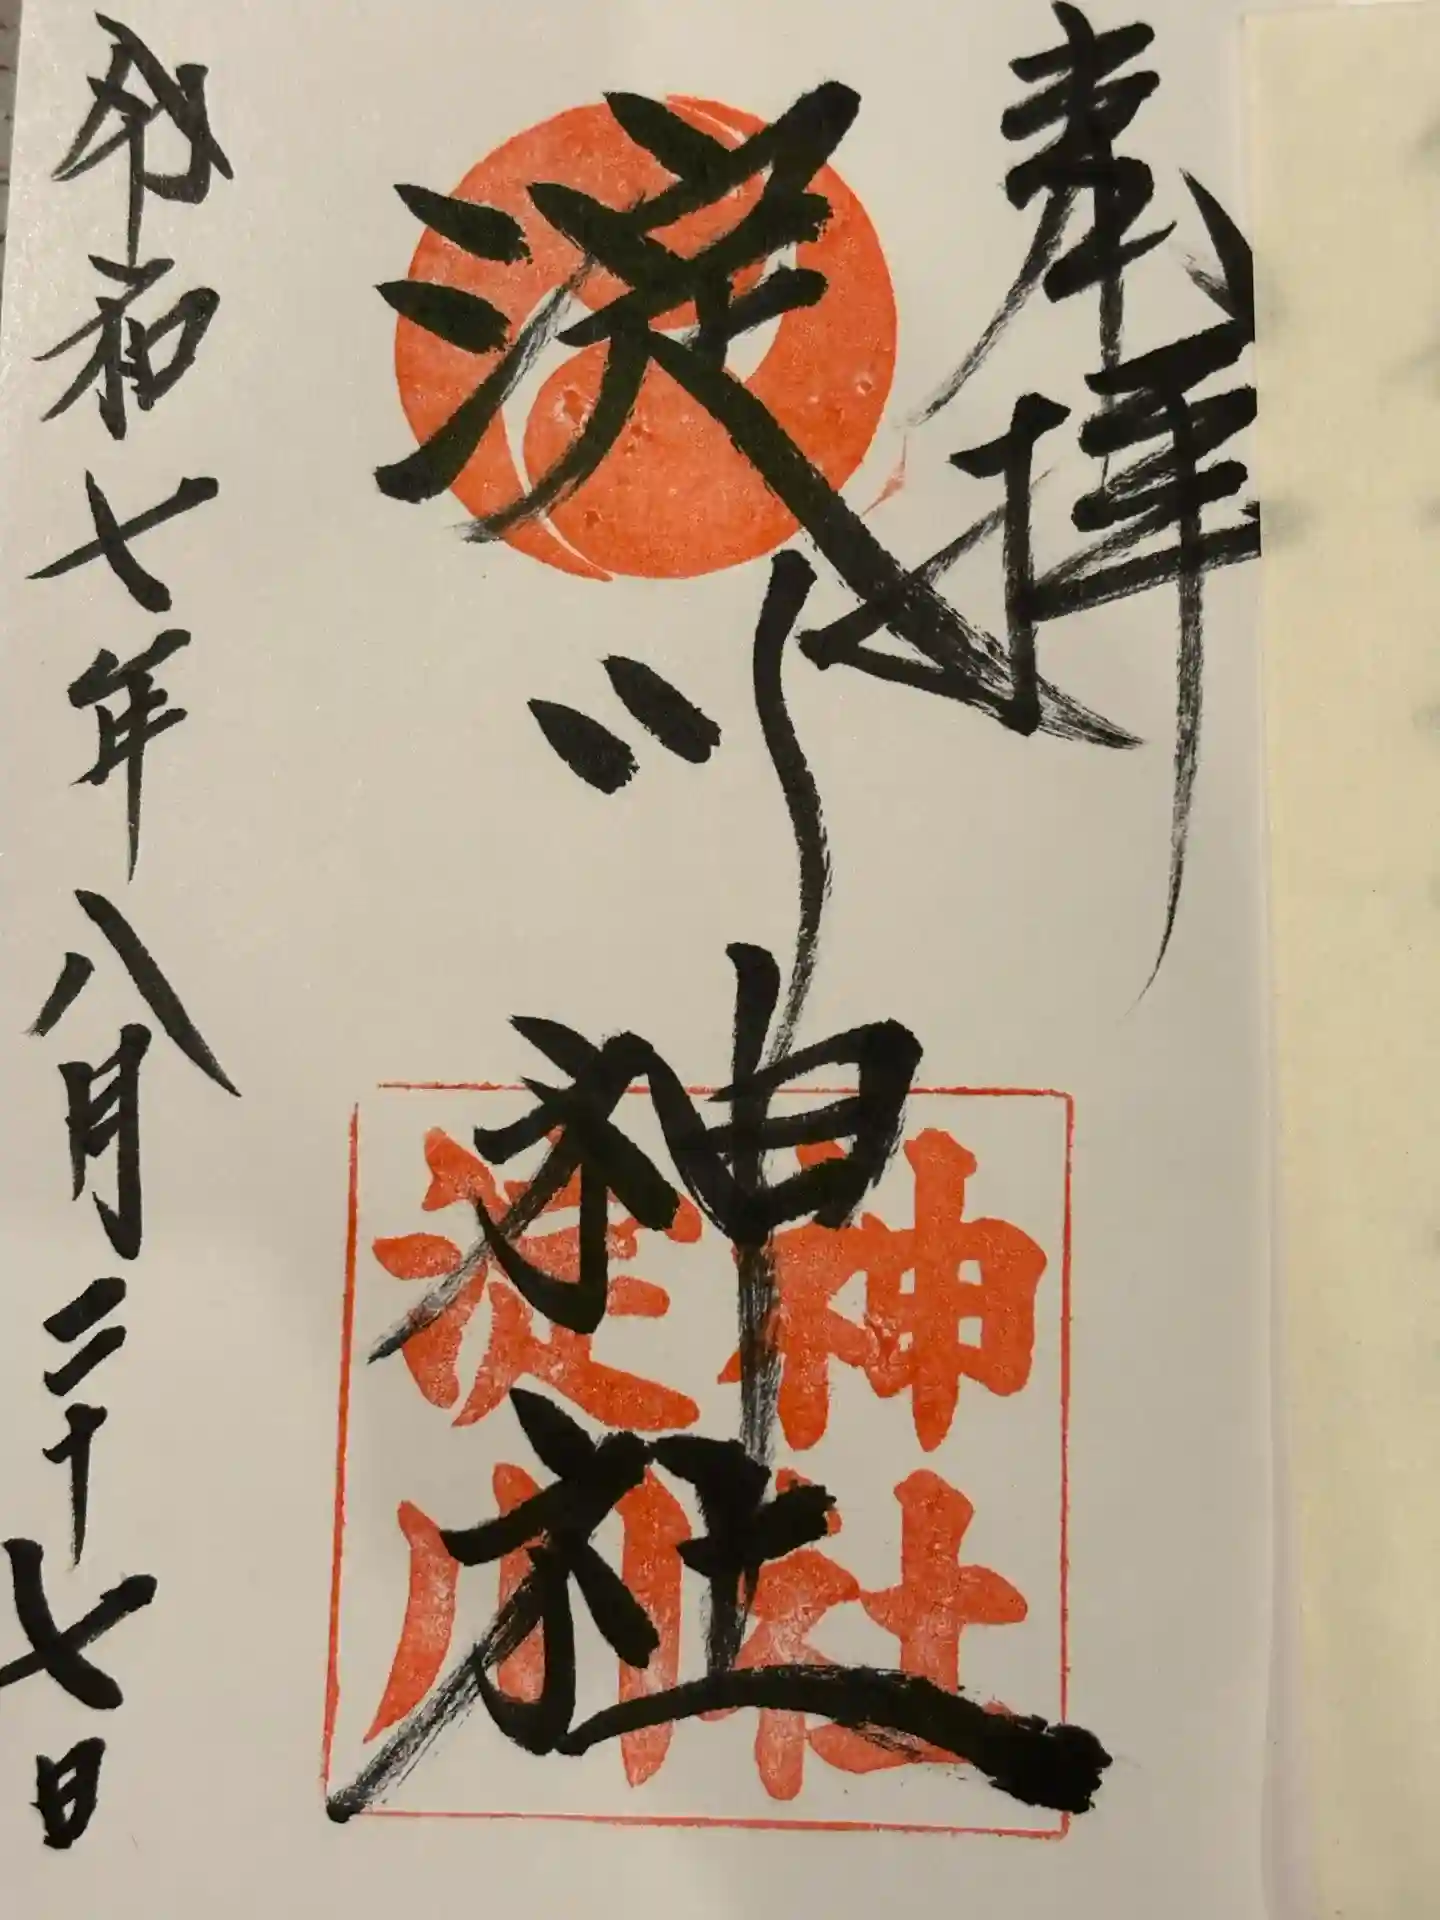 奉拝
淀川神社
令和七年八月二十七日
淀川
神社